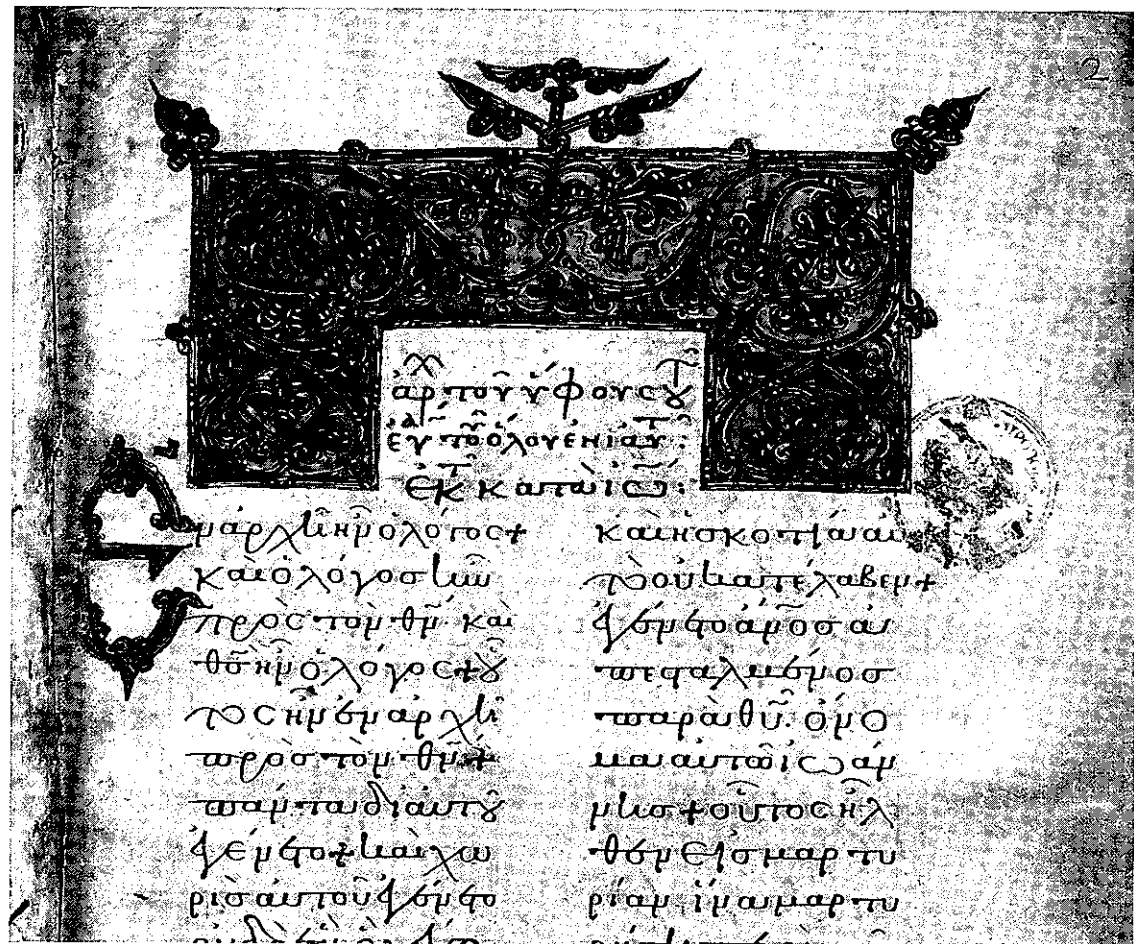 2
ἀρχ τοῦ ὕφους τοῦ
εὐ τοῦ ὅλου ἐνιαυτ:
ἐκ τ κατὰ ἰω:
Ἐν ἀρχῆ ἦν ὁ λόγος+
καὶ ὁ λόγος ἦν
πρὸς τὸν θν καὶ
θς ἦν ὁ λόγος+οὗ
τος ἦν ἐν ἀρχῆ
πρὸς τὸν θν+
πάντα δι αὐτοῦ
ἐγένετο+καὶ χω
ρὶς αὐτοῦ ἐγένετο
καὶ ἡ σκοτία αὐ
τὸ οὐ κατέλαβεν+
ἐγένετο ἄνος ἀ
πεσταλμένος
παρὰ θυ. ὄνο
μα αὐτῶ ἰωάν
νης+οὗτος ἦλ
θεν εἰς μαρτυ
ρίαν, ἵνα μαρτυ